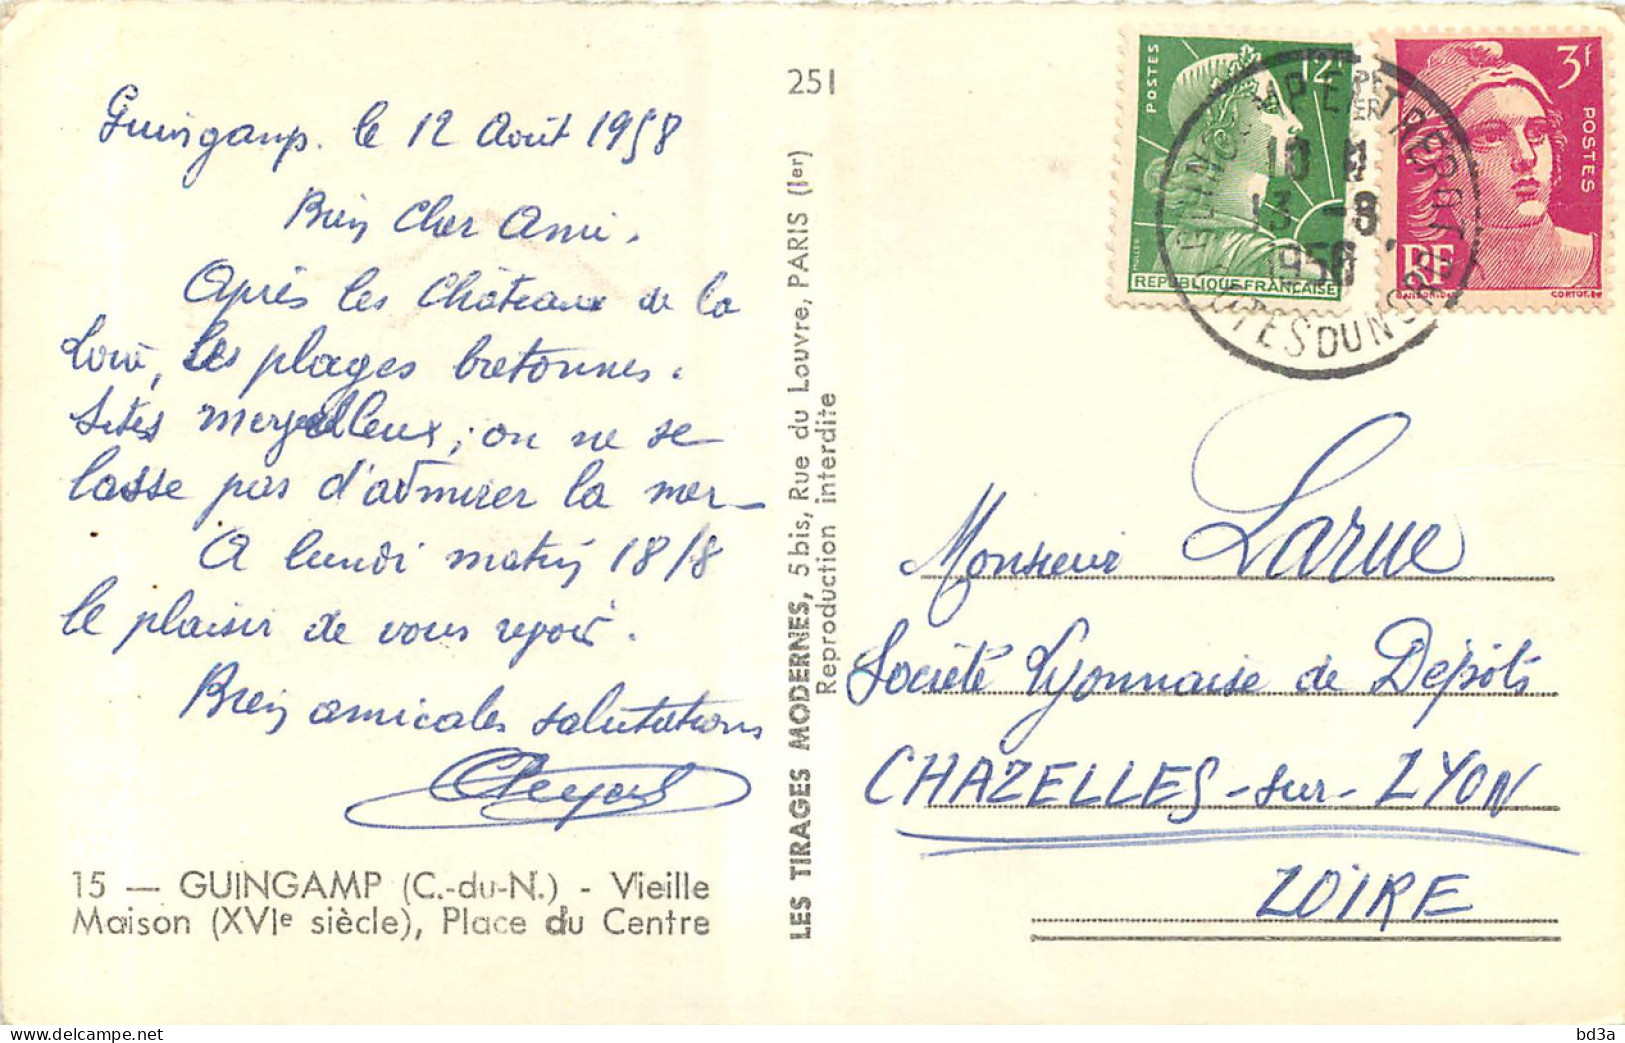 Guingamp. le 12 Août 1958
Bien Cher Ami.
Après les Châteaux de la
Loire, les plages bretonnes.
Sites merveilleux, on ne se
lasse pas d'admirer la mer
A lundi matin 18/8
le plaisir de vous revoir.
Bien amicales salutations
15 — GUINGAMP (C.-du-N.) - Vieille
Maison (XVIe siècle), Place du Centre
251
LES TIRAGES MODERNES, 5 bis, Rue du Louvre, PARIS (Ier)
Reproduction interdite
POSTES
12F
MULLER
REPUBLIQUE FRANÇAISE
3f
POSTES
RF
GANDON
CORTOT
13 -8
1958
COTES DU NORD
Monsieur Larue
Société Lyonnaise de Dépôts
CHAZELLES-sur-LYON
LOIRE
bd3a